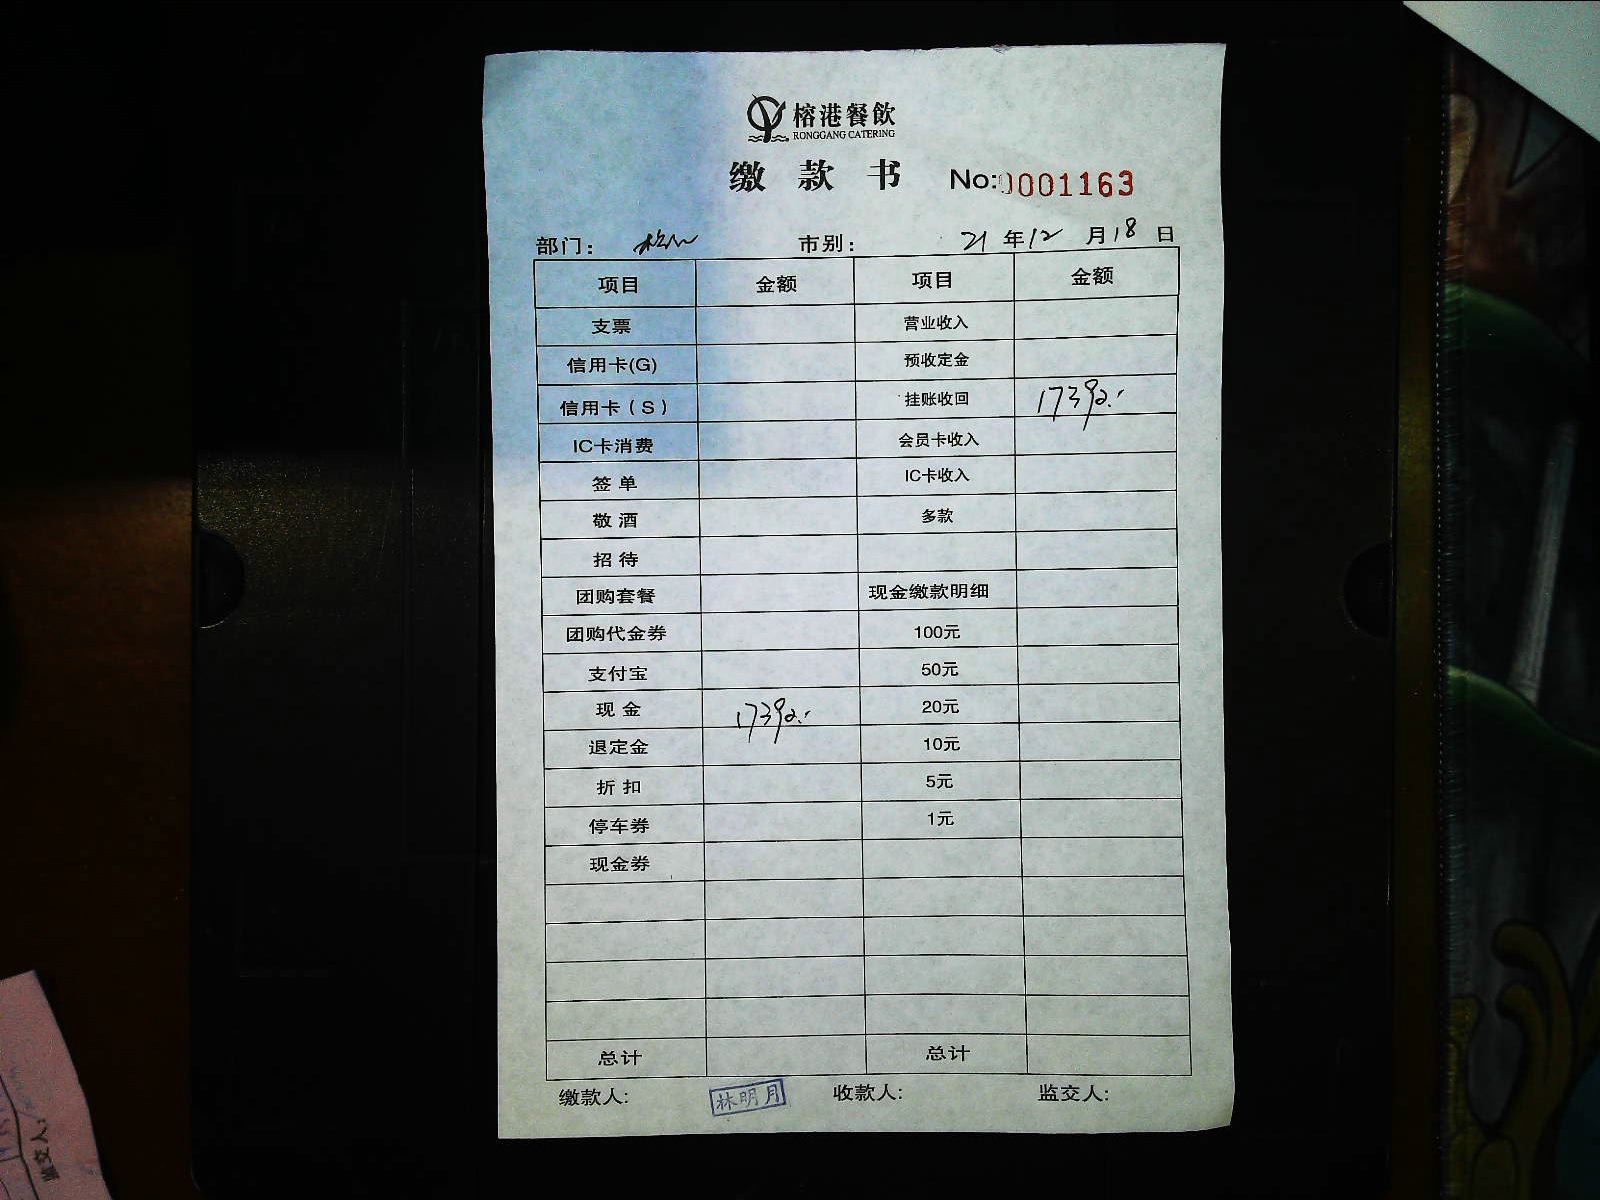 榕港餐飲
RONGGANG CATERING
缴款书 No:0001163
部门： 市别： 21年12月18日
项目 金额 项目 金额
支票 营业收入
信用卡(G) 预收定金
信用卡（S） 挂账收回 17392.-
IC卡消费 会员卡收入
签单 IC卡收入
敬酒 多款
招待
团购套餐 现金缴款明细
团购代金券 100元
支付宝 50元
现金 17392.- 20元
退定金 10元
折扣 5元
停车券 1元
现金券
总计 总计
缴款人: 林明月 收款人: 监交人:
监交人: